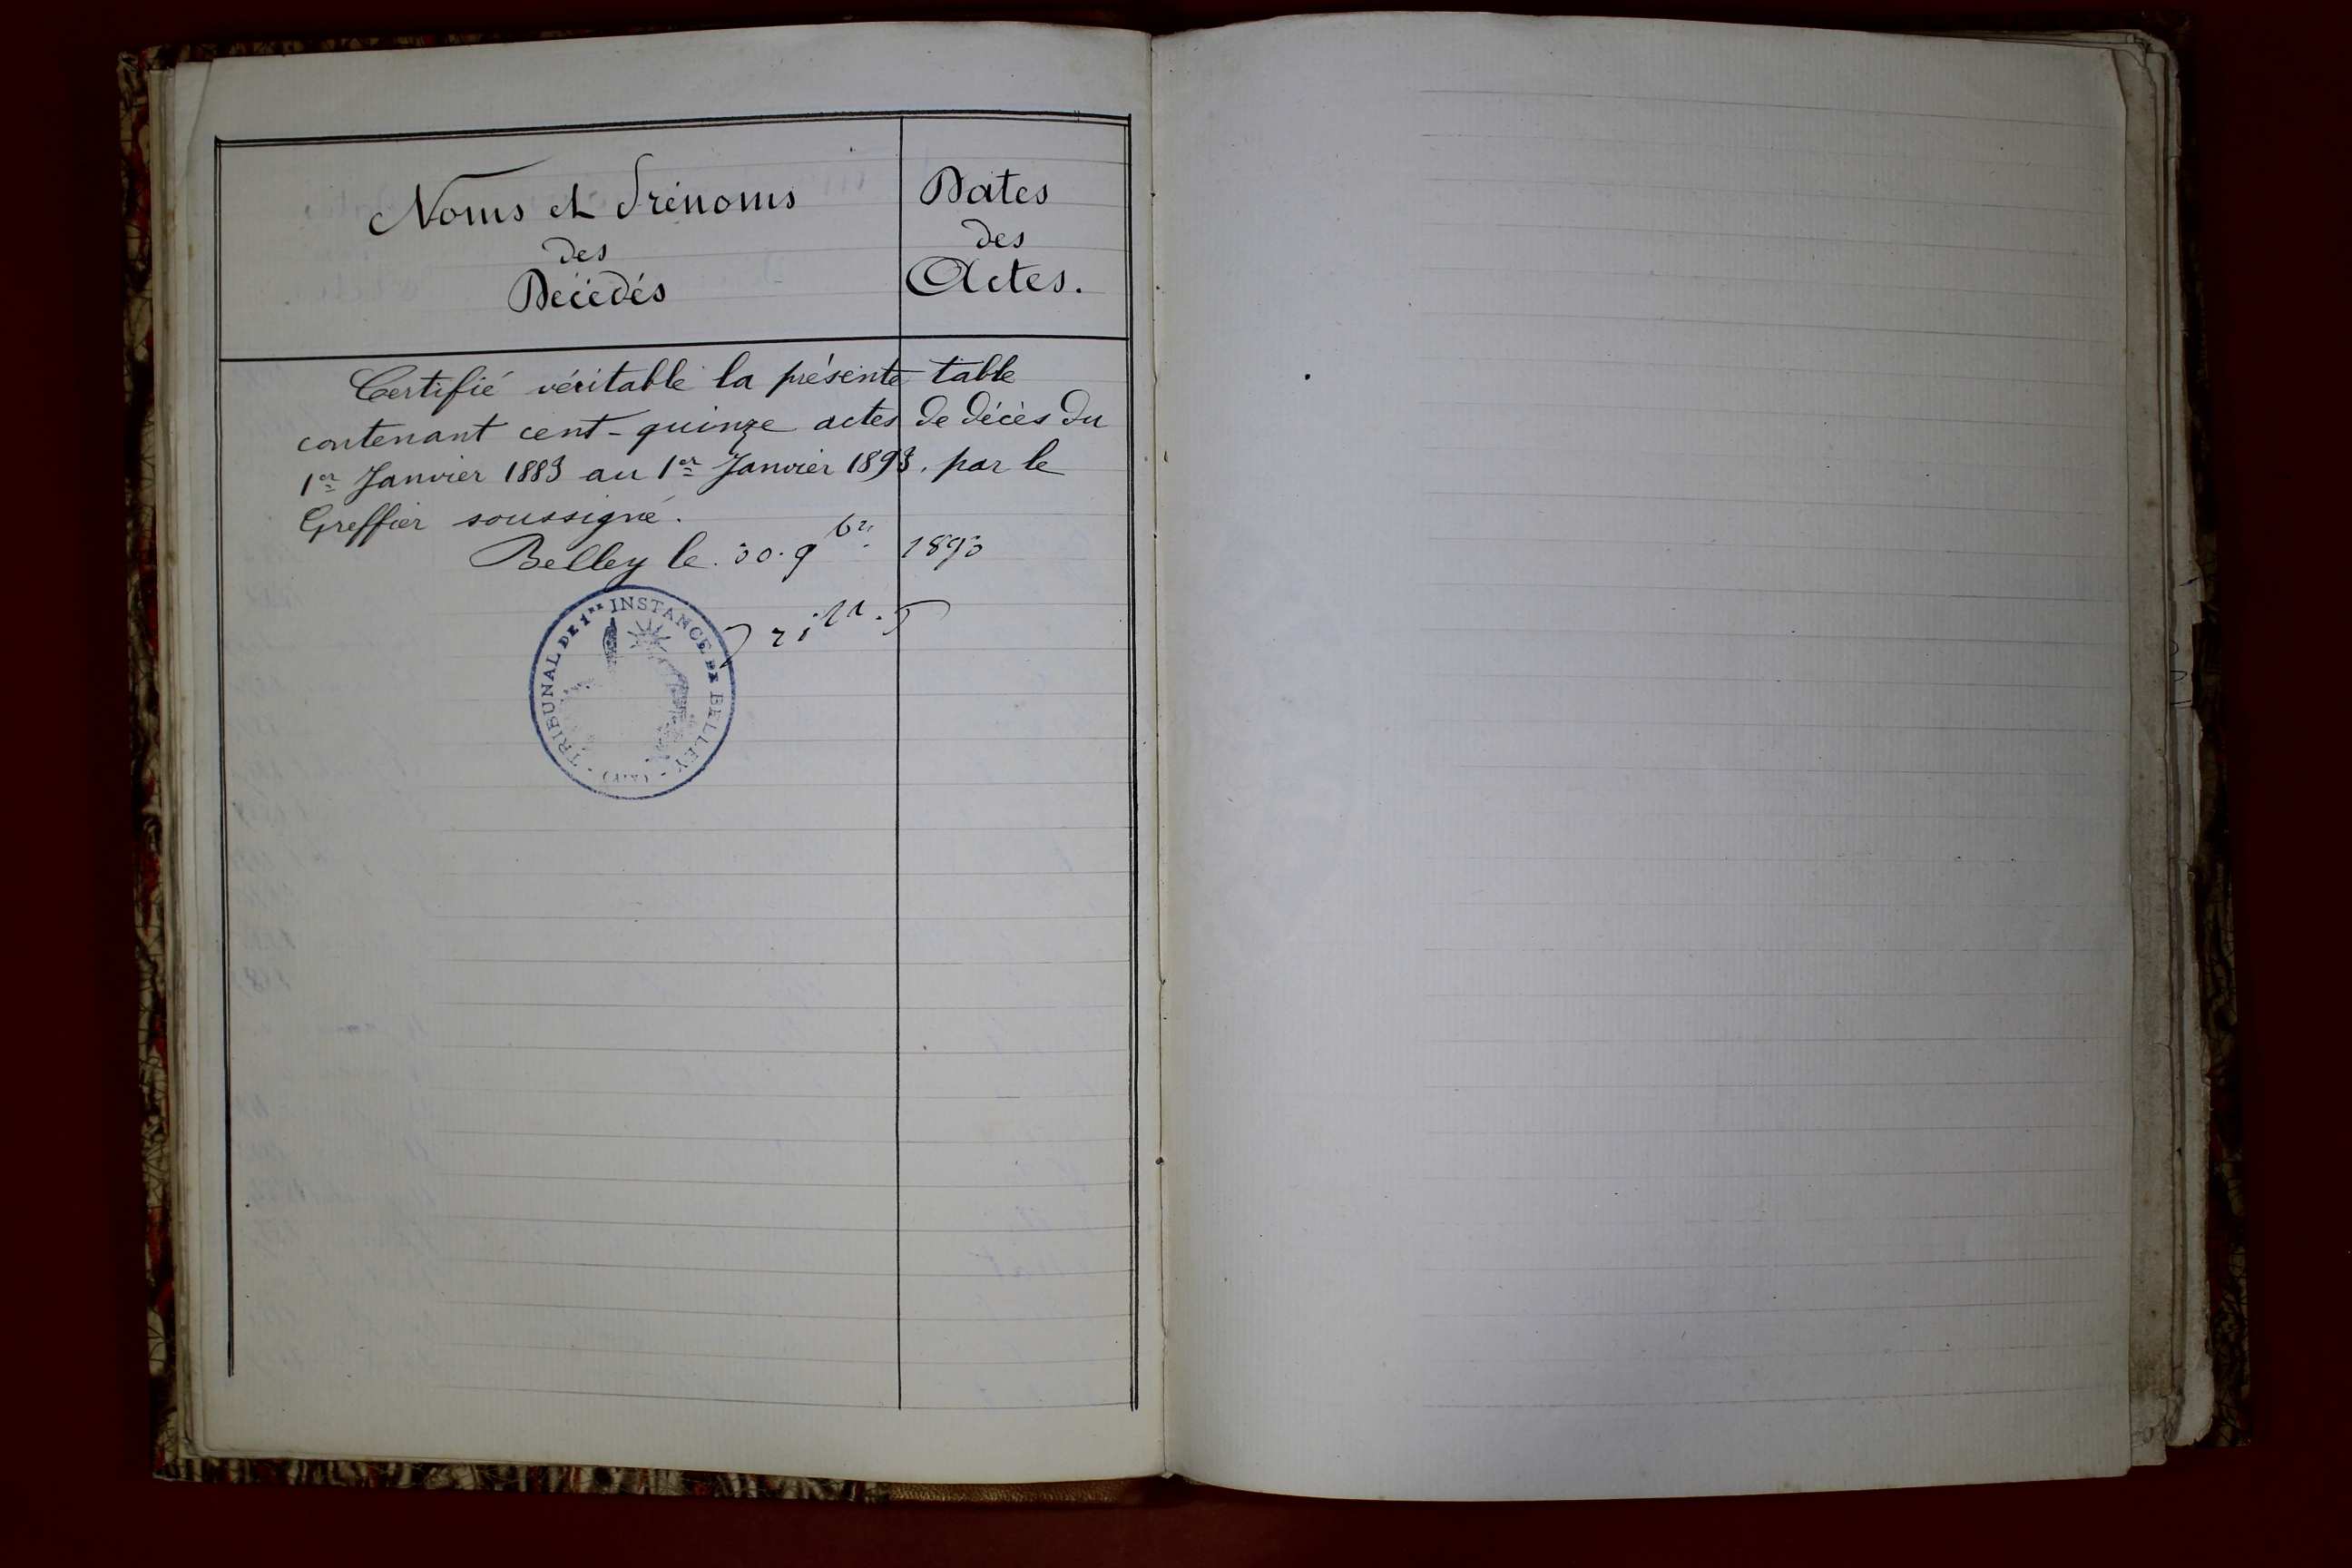 Noms et Prénoms
des
Décédés
Dates
des
Actes.
Certifié véritable la présente table
contenant cent-quinze actes de décès du
1er Janvier 1883 au 1er Janvier 1893. par le
Greffier soussigné.
Belley le 30. 9bre 1893
TRIBUNAL DE 1RE INSTANCE DE BELLEY - (AIN) -